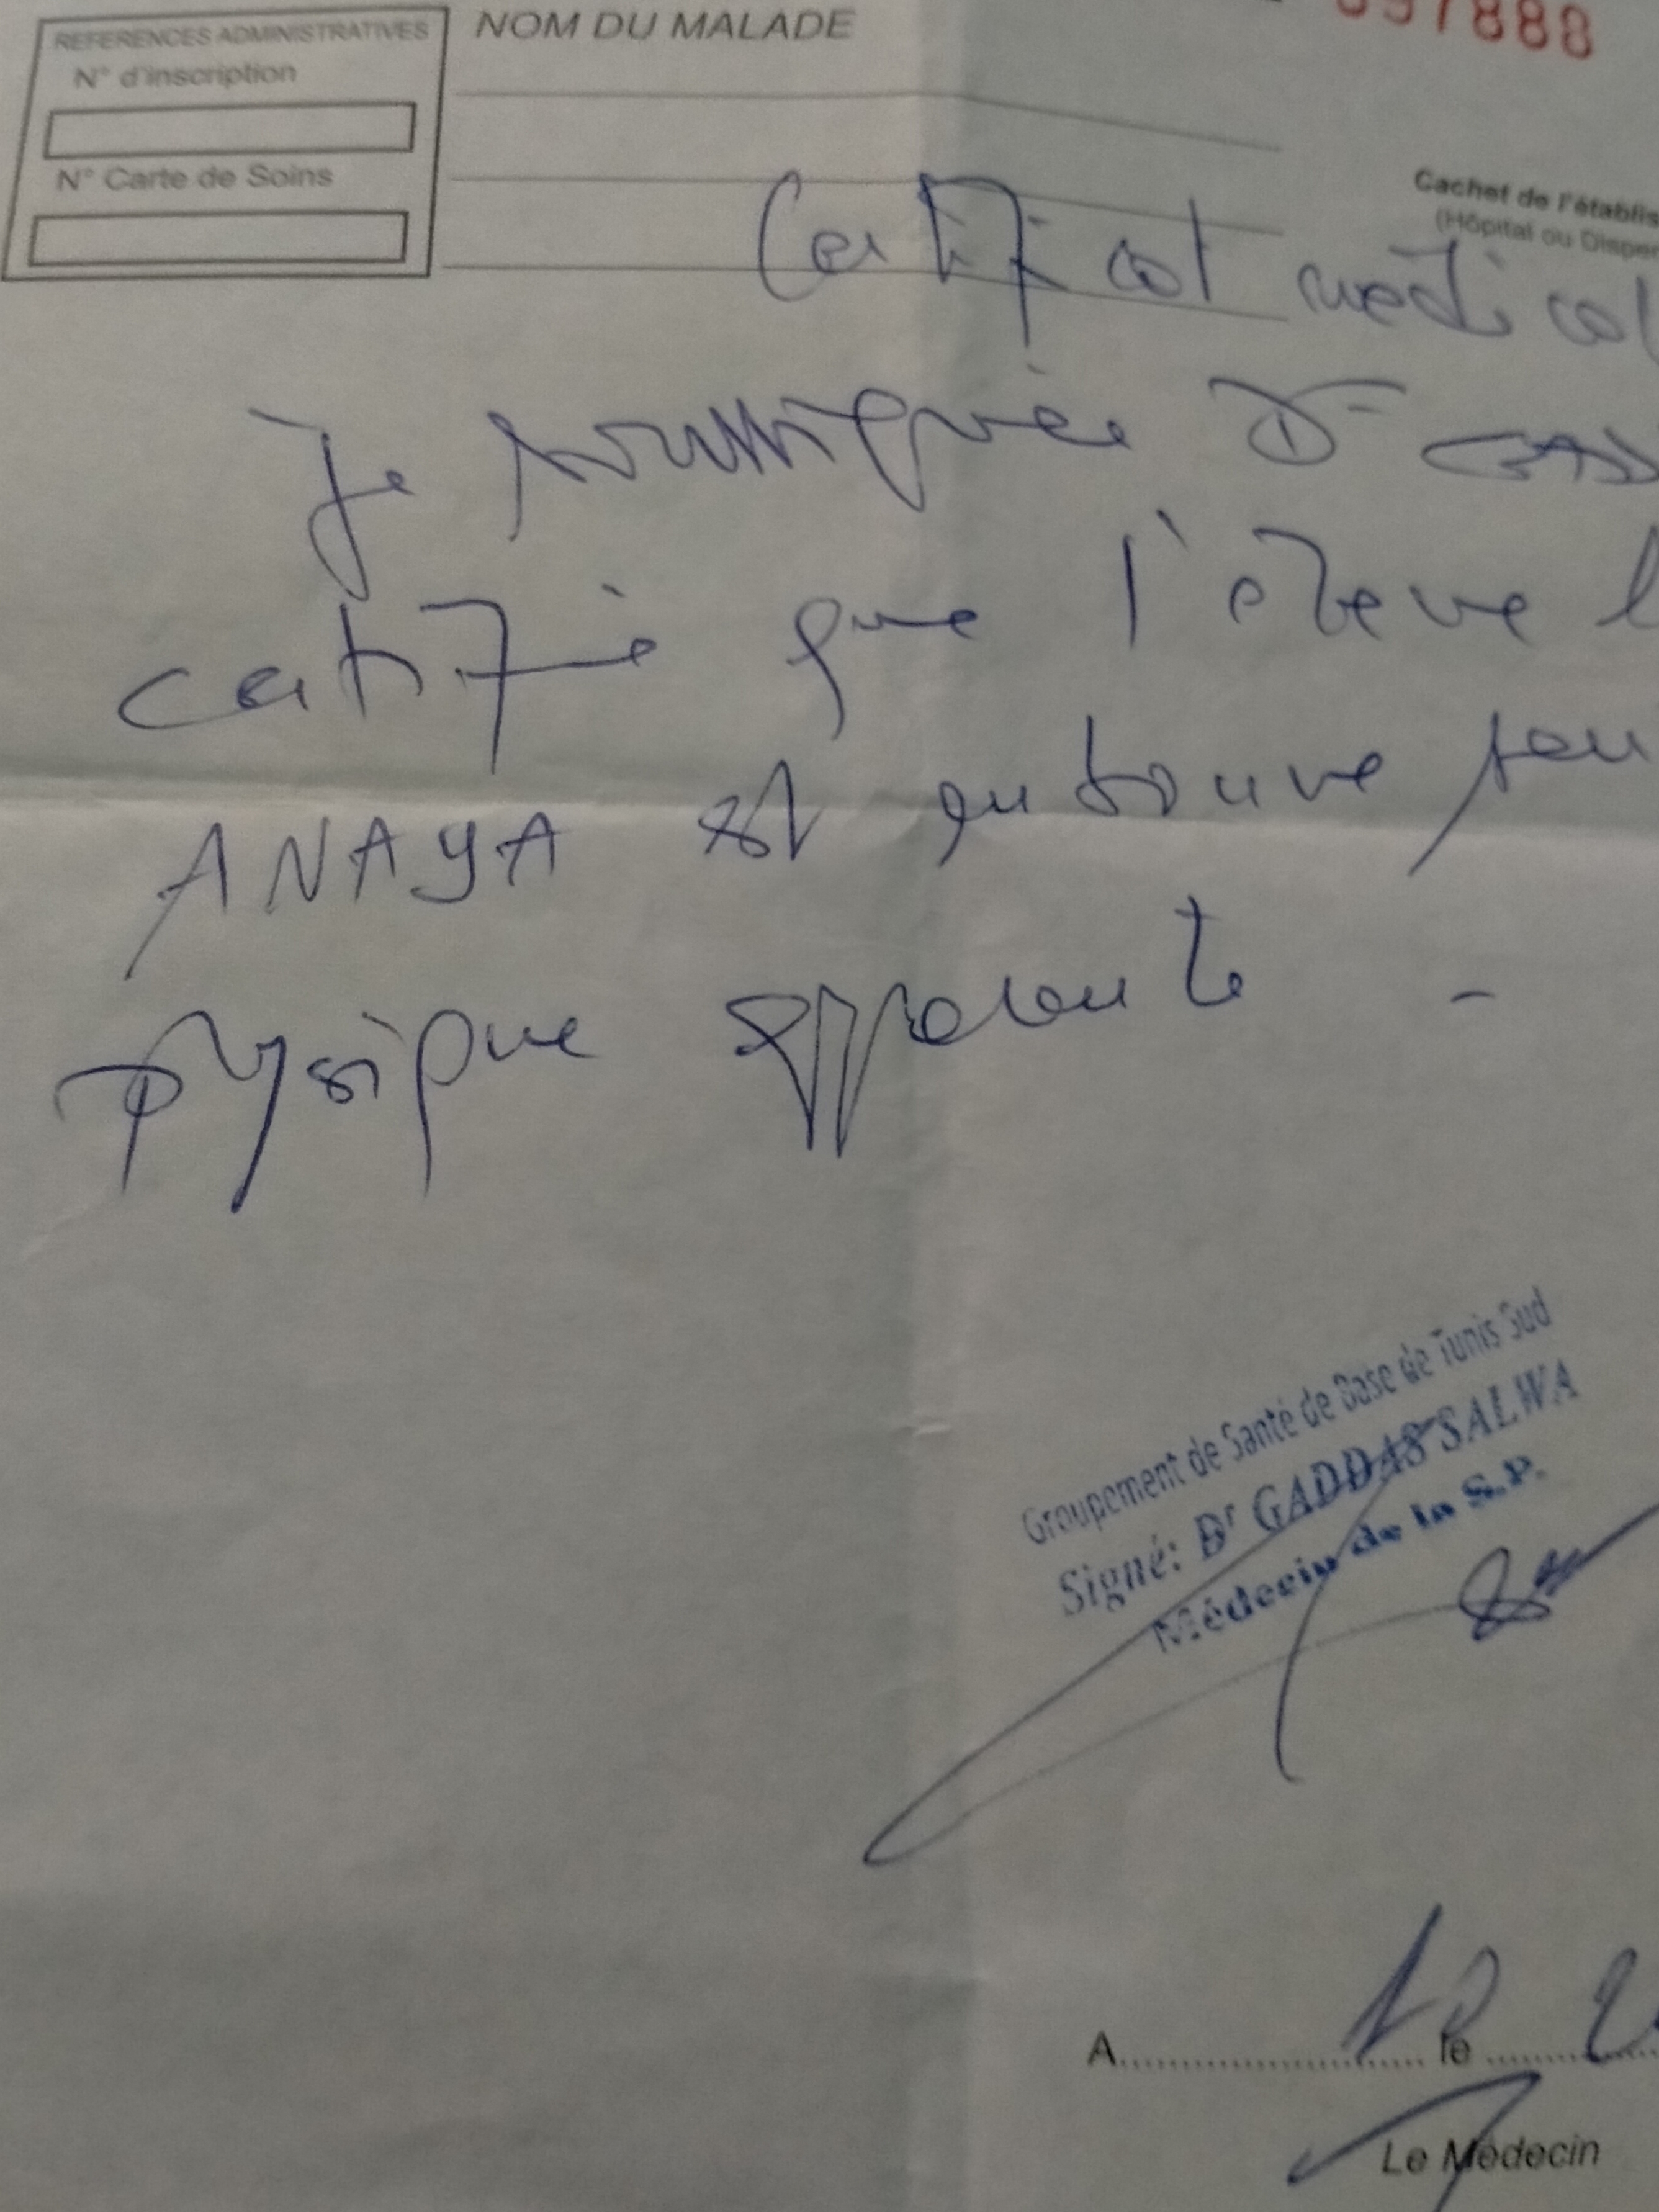 REFERENCES ADMINISTRATIVES
N° d'inscription
N° Carte de Soins
NOM DU MALADE
97888
Cachet de l'établis
(Hôpital ou Dispen
Certificat médical
Je soussignée Dr GADD
certifie que l'élève
ANAYA est
physique apparente -
Groupement de Santé de Base de Tunis Sud
Signé: Dr GADDAS SALWA
Médecin de la S.P.
A le
Le Médecin